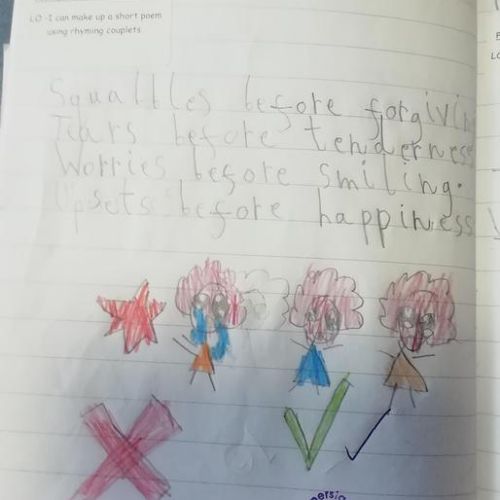 LO -I can make up a short poem
using rhyming couplets
Squabbles before forgivin
Tears before tenderness
Worries before smiling.
Upsets before happiness